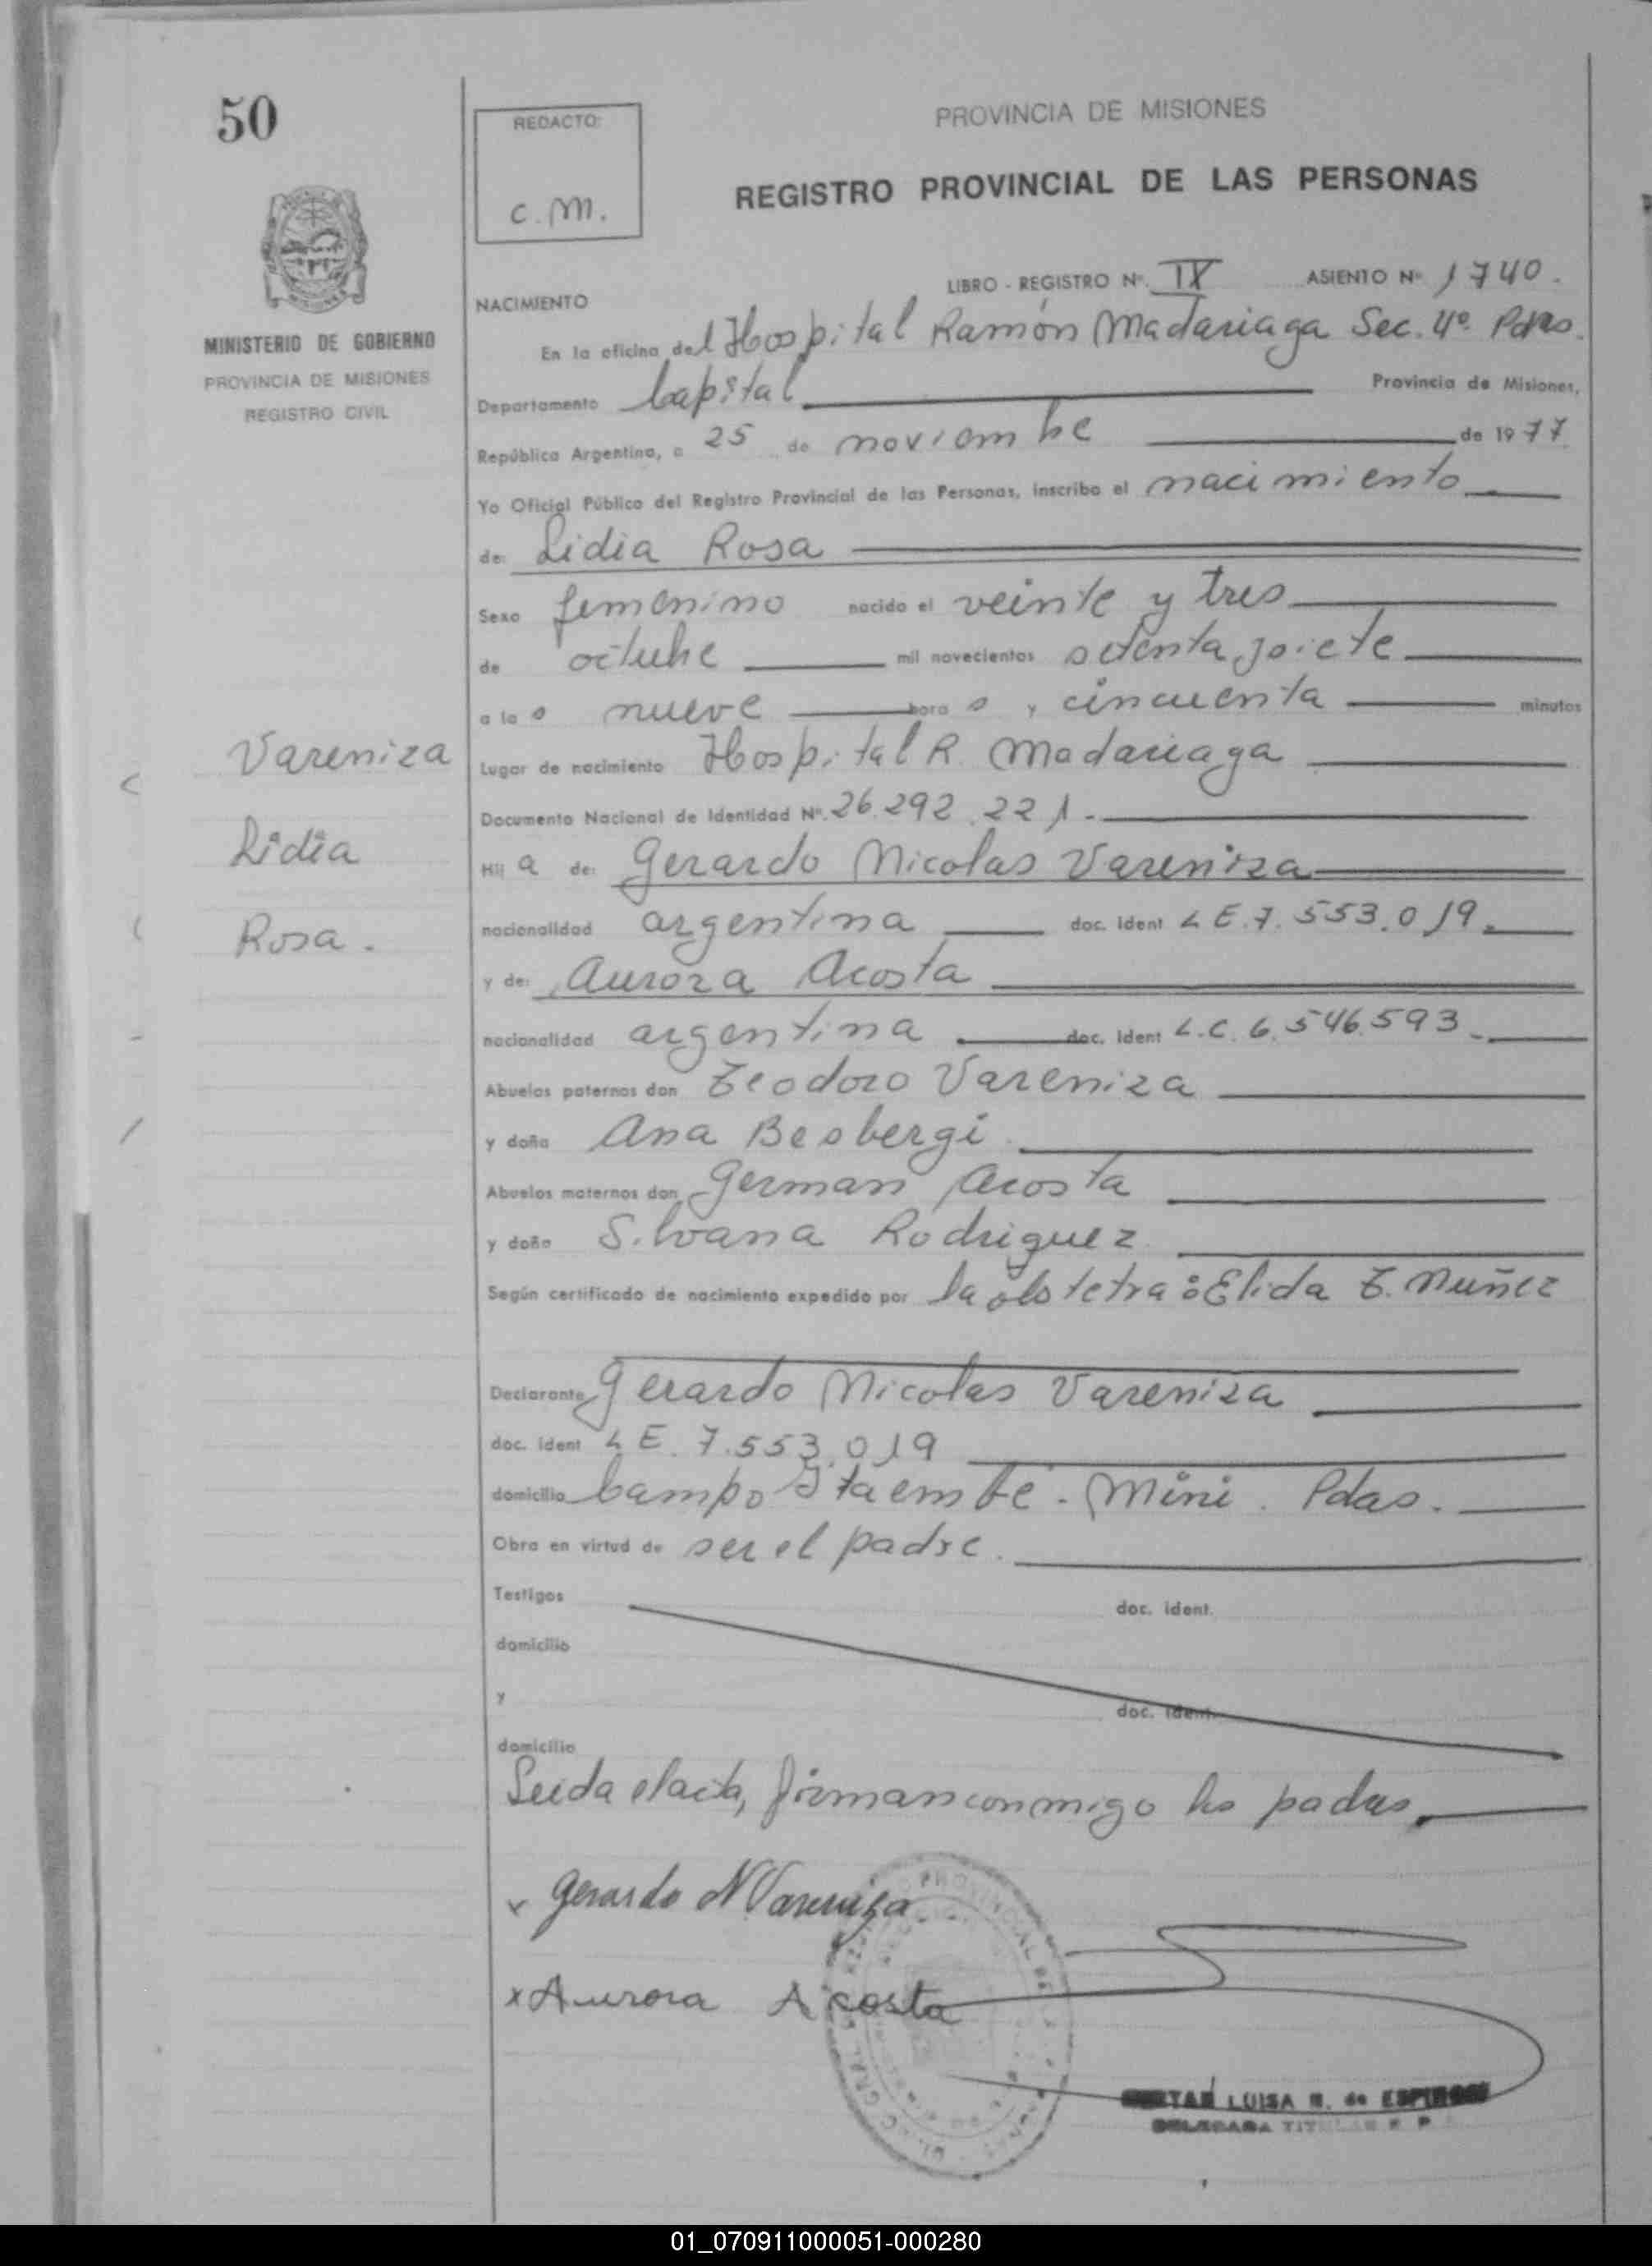 50
REDACTO:
C. M.
PROVINCIA DE MISIONES
REGISTRO PROVINCIAL DE LAS PERSONAS
LIBRO - REGISTRO Nº. IX ASIENTO Nº 1740.
NACIMIENTO
MINISTERIO DE GOBIERNO
PROVINCIA DE MISIONES
REGISTRO CIVIL
En la oficina del Hospital Ramón Madariaga Sec. 4º. Pdas.
Departamento Capital Provincia de Misiones,
República Argentina, a 25 de noviembre de 1977
Yo Oficial Público del Registro Provincial de las Personas, inscribo el nacimiento
de: Lidia Rosa
Sexo femenino nacido el veinte y tres
de octubre mil novecientos setenta y siete
a las nueve horas y cincuenta minutos
Lugar de nacimiento Hospital R. Madariaga
Documento Nacional de Identidad Nº. 26.292.221.-
Hija de: Gerardo Nicolas Vareniza
nacionalidad argentina doc. Ident L E. 7.553.019.
y de: Aurora Acosta
nacionalidad argentina doc. Ident L.C. 6.546.593.-
Abuelos paternos don Teodoro Vareniza
y doña Ana Besbergi.
Abuelos maternos don German Acosta
y doña Silvana Rodriguez
Según certificado de nacimiento expedido por la obstetra: Elida T. Nuñez
Declarante Gerardo Nicolas Vareniza
doc. Ident L E. 7.553.019
domicilio Campo Itaembé - Mini. Pdas.
Obra en virtud de ser el padre.
Testigos doc. ident.
domicilio
y doc. ident.
domicilio
Leida el acta, firman conmigo los padres.
Vareniza
Lidia
Rosa.
x Gerardo N Vareniza
x Aurora Acosta
LUISA R. de
01_070911000051-000280